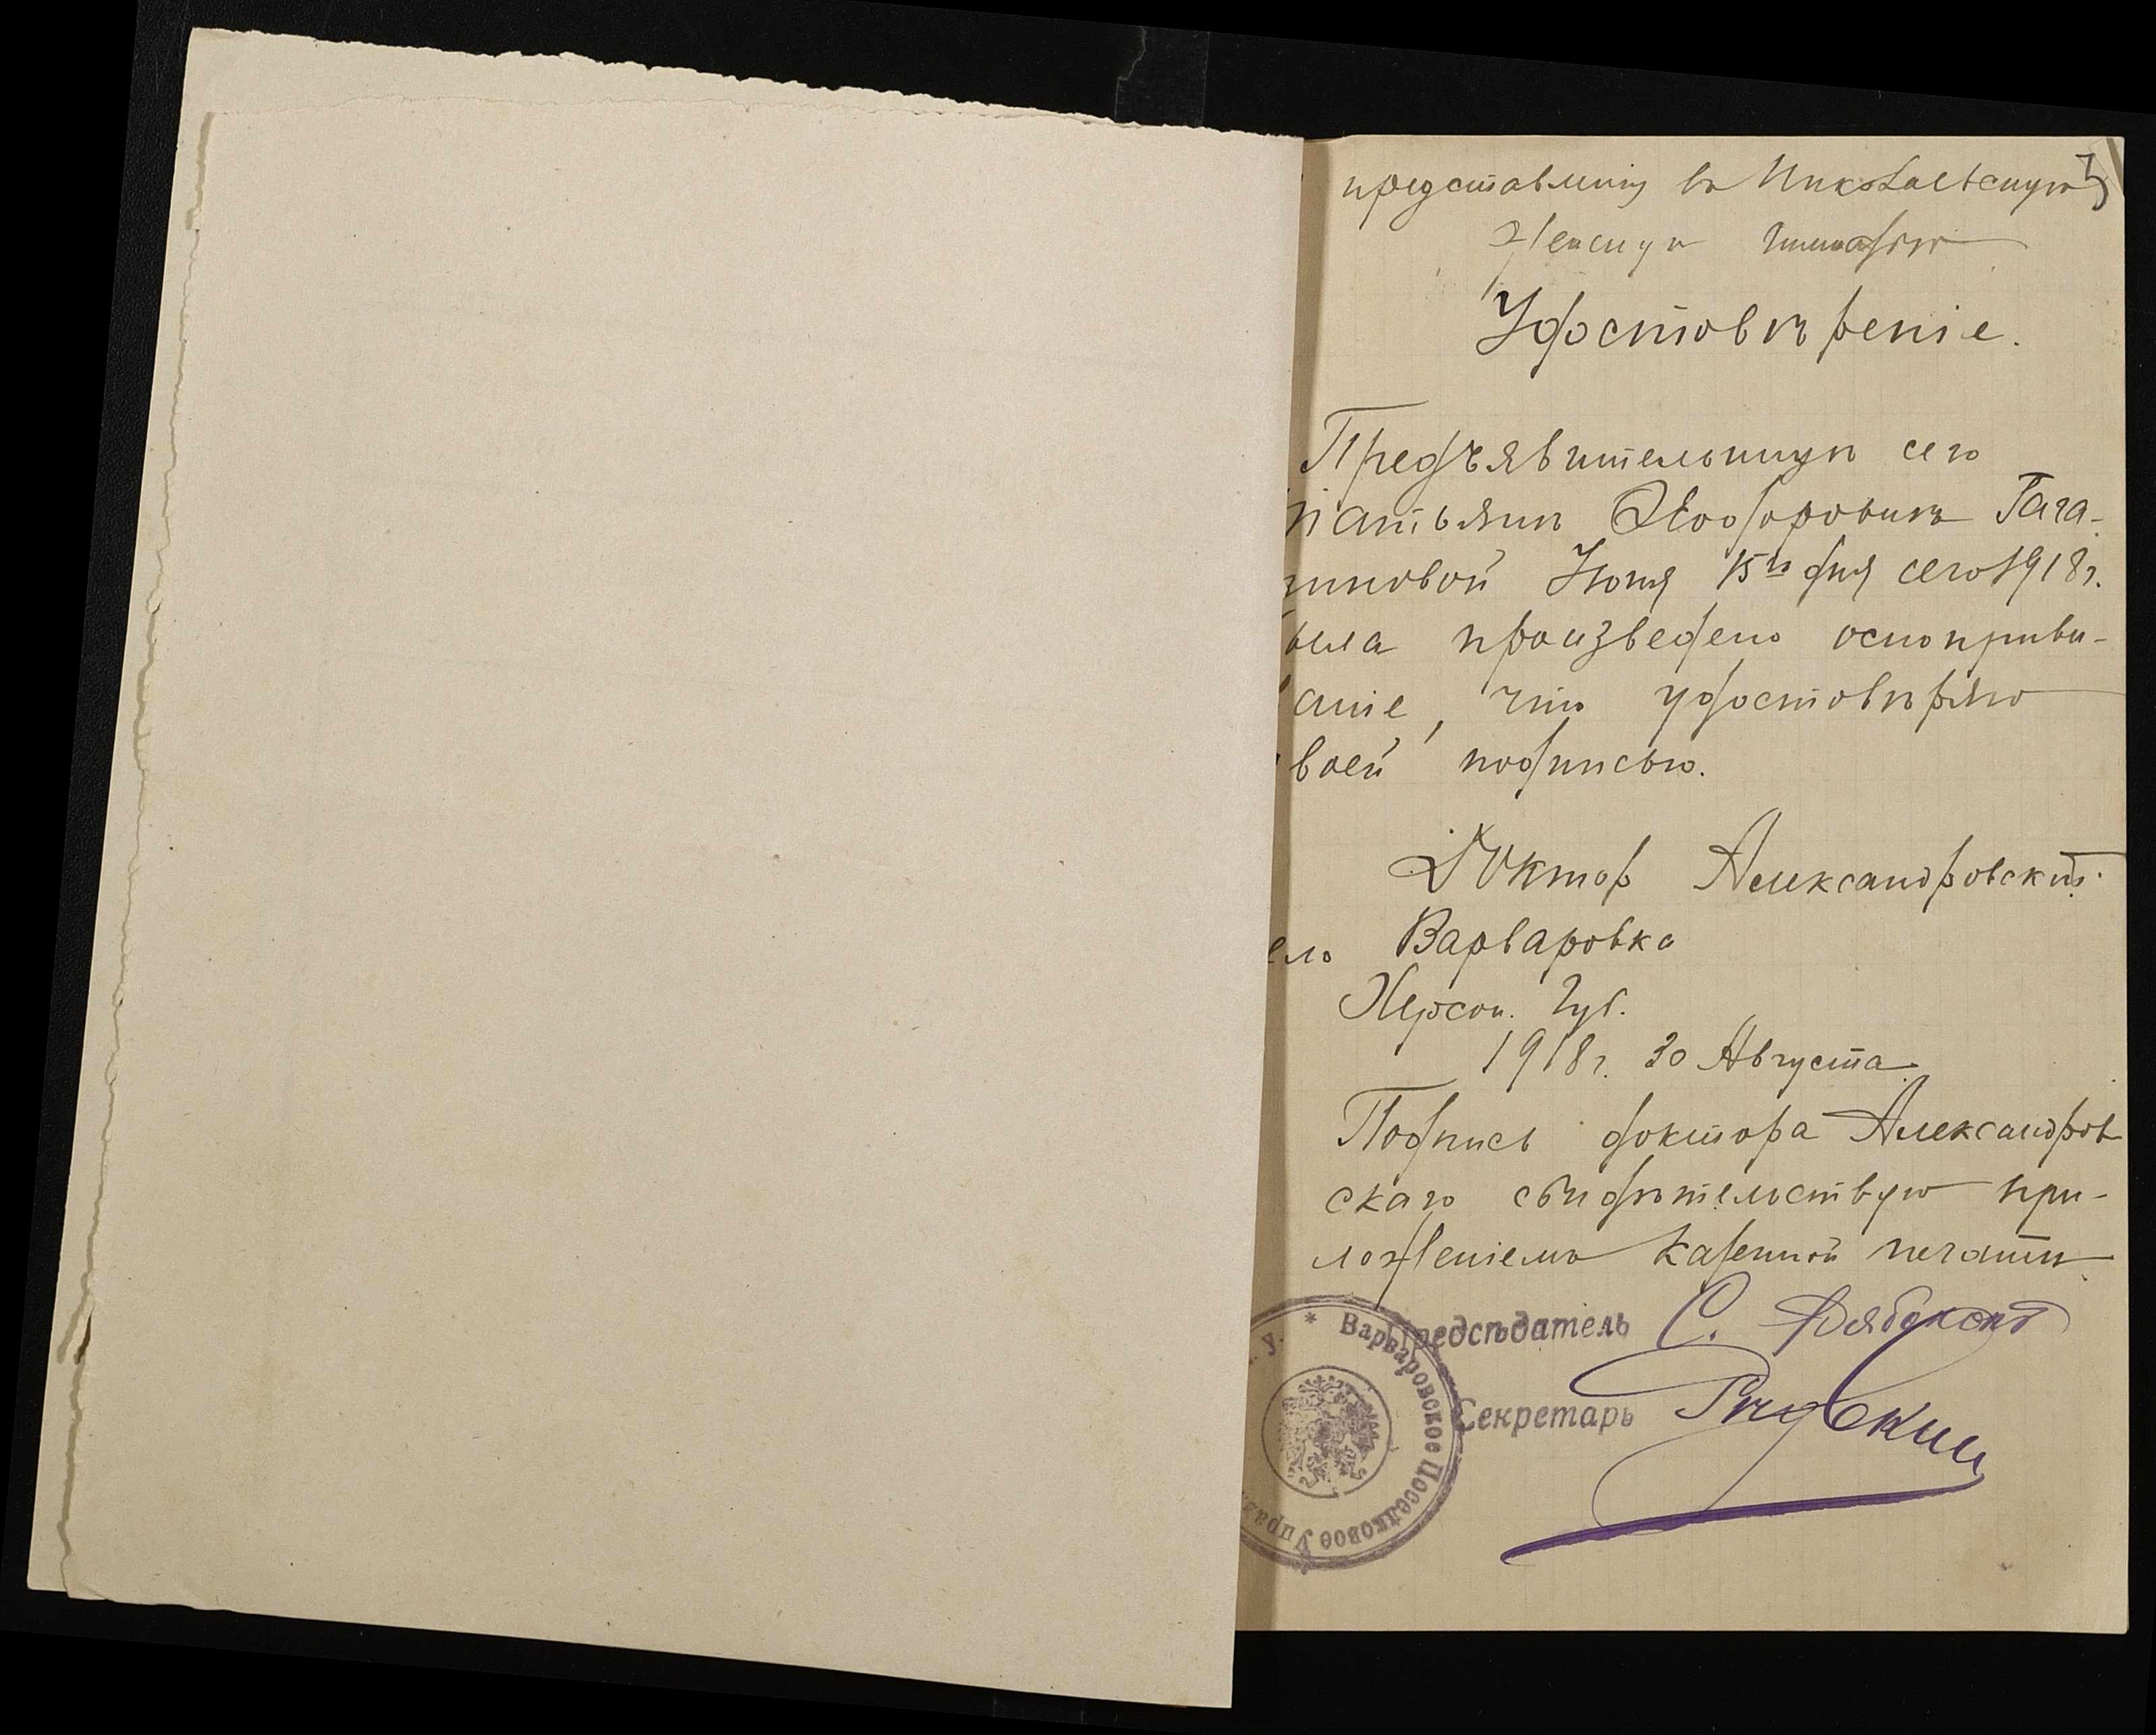 представлению въ Николаевскую
Женскую гимназію
Удостовѣреніе.
Предъявительницѣ сего
Татьянѣ Ѳеодоровнѣ Гага-
новой Іюня 15го дня сего 1918 г.
была произведено оспоприви-
аніе, что удостовѣряю
воей подписью.
Доктор Александровскій.
ело Варваровка
Херсон. Губ.
1918 г. 30 Августа
Подпись доктора Александров
скаго свидѣтельствую при-
ложеніемъ казенной печати
Предсѣдатель С.
Секретарь
* Варваровское Поселковое Управ